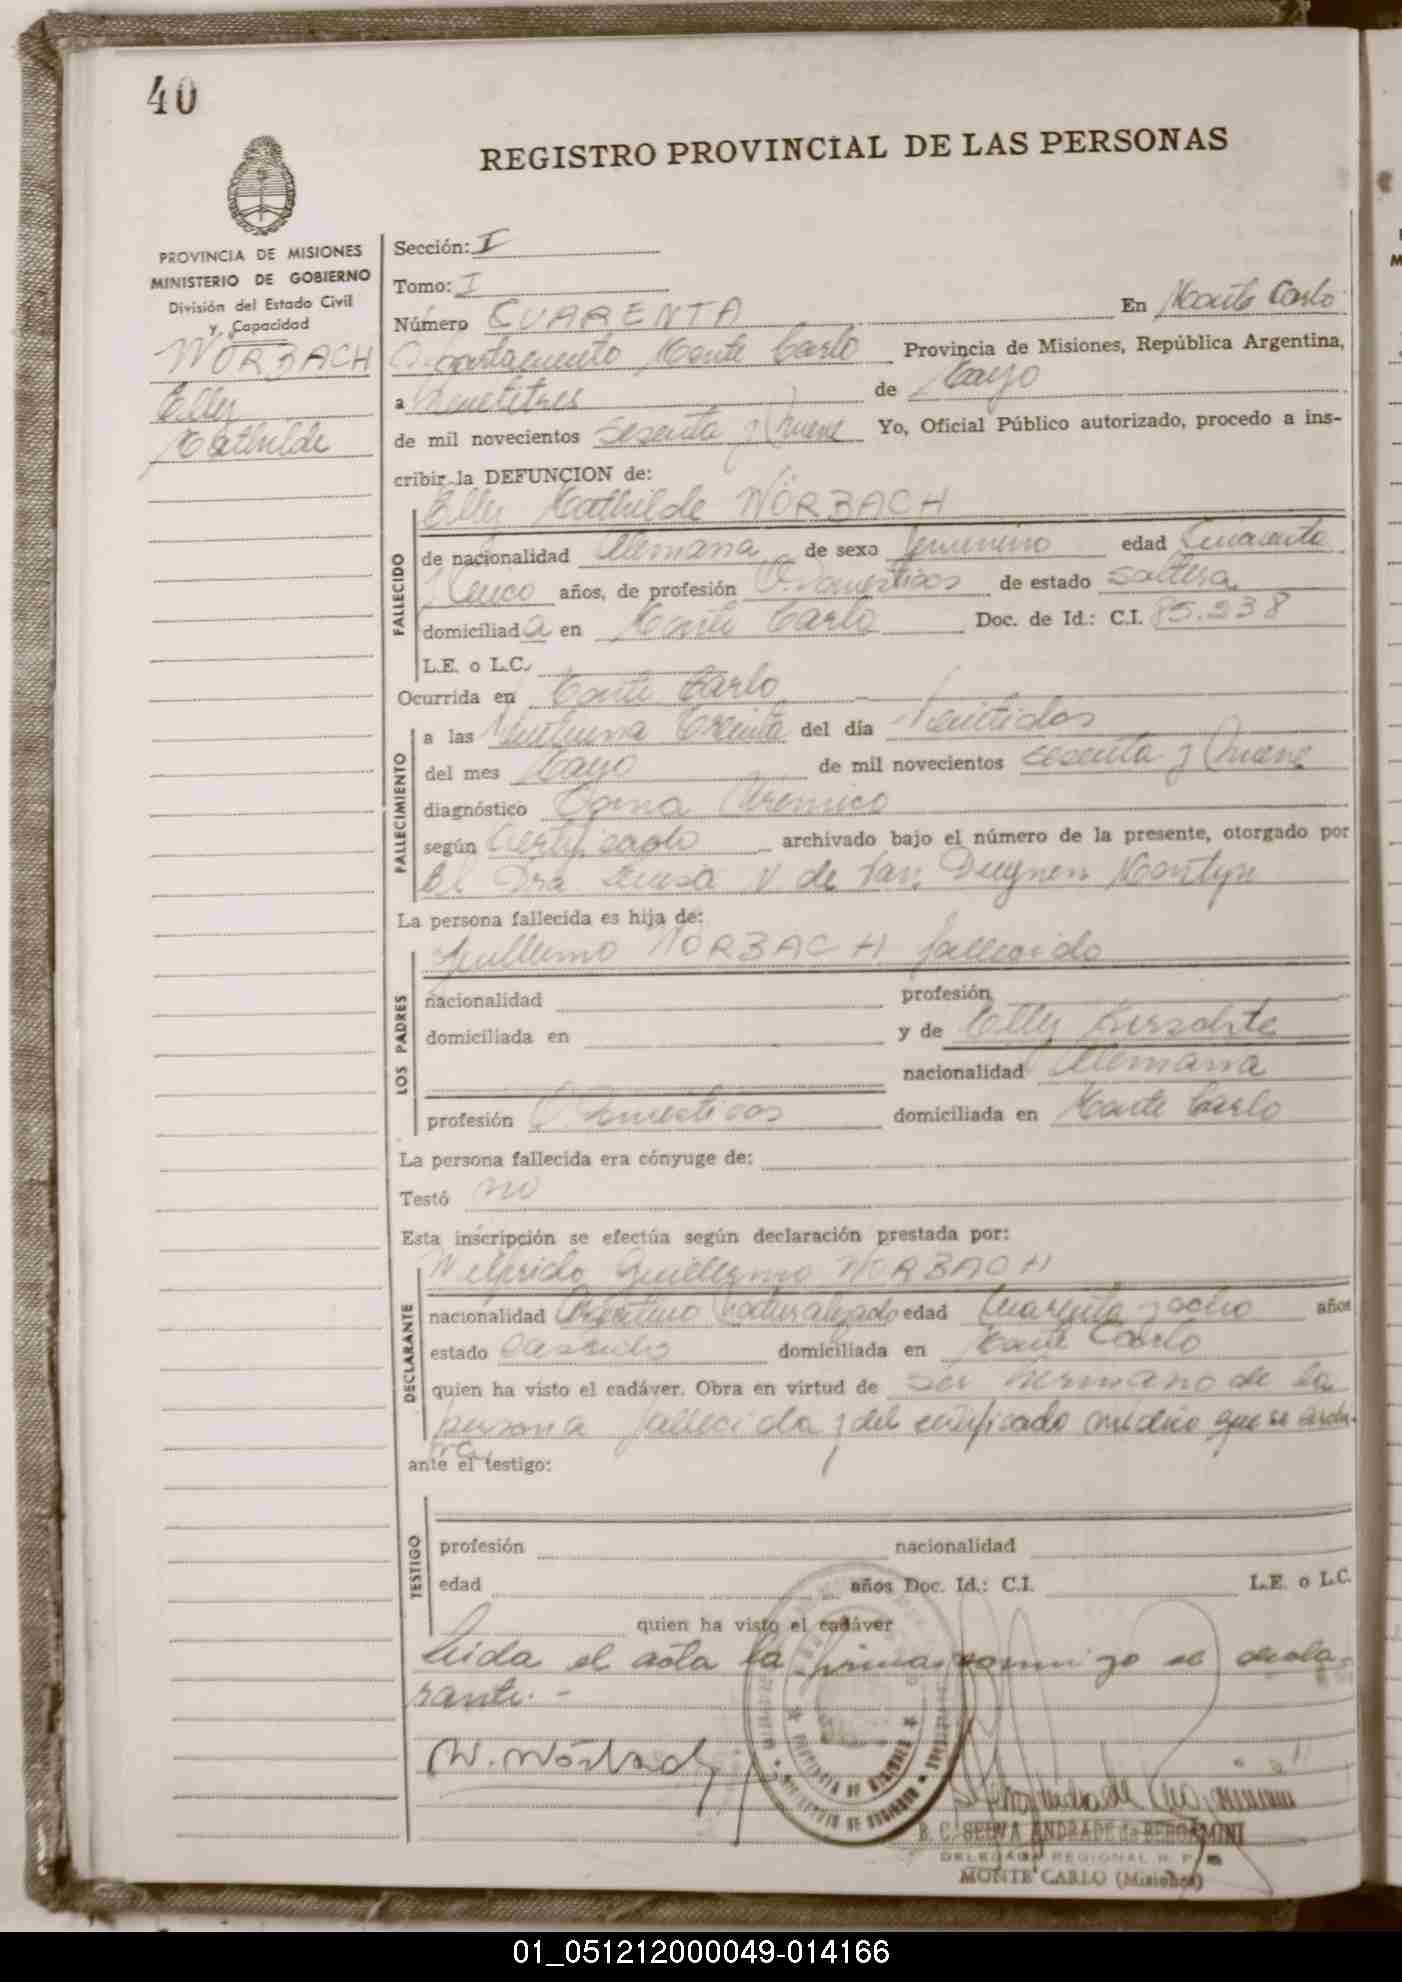 40
REGISTRO PROVINCIAL DE LAS PERSONAS
PROVINCIA DE MISIONES
MINISTERIO DE GOBIERNO
División del Estado Civil
y Capacidad
WÖRBACH
Elly
Mathilde
Sección: I
Tomo: I
Número CUARENTA En Monte Carlo
Departamento Monte Carlo Provincia de Misiones, República Argentina,
a Veintitres de Mayo
de mil novecientos sesenta y Nueve Yo, Oficial Público autorizado, procedo a ins-
cribir la DEFUNCION de:
Elly Mathilde WÖRBACH
FALLECIDO
de nacionalidad Alemana de sexo femenino edad Cuarenta
años, de profesión Q. Domesticos de estado soltera
domiciliada en Monte Carlo Doc. de Id.: C.I. 85.238
L.E. o L.C.
Ocurrida en Monte Carlo
FALLECIMIENTO
a las Veintiuna treinta del día Veintidos
del mes Mayo de mil novecientos sesenta y Nueve
diagnóstico Coma Uremico
según Certificado archivado bajo el número de la presente, otorgado por
El Dra. Luisa V. de Van
La persona fallecida es hija de:
Guillermo WÖRBACH fallecido
LOS PADRES
nacionalidad profesión
domiciliada en y de Elly
nacionalidad Alemana
profesión Q. Domesticos domiciliada en Monte Carlo
La persona fallecida era cónyuge de:
Testó no
Esta inscripción se efectúa según declaración prestada por:
Wilfrido Guillermo WÖRBACH
DECLARANTE
nacionalidad Argentino Naturalizado edad Cuarenta y ocho años
estado casado domiciliada en Monte Carlo
quien ha visto el cadáver. Obra en virtud de ser hermano de la
persona fallecida y del certificado médico que se archi-
va,
ante el testigo:
TESTIGO
profesión nacionalidad
edad años Doc. Id.: C.I. L.E. o L.C.
quien ha visto el cadáver
Leida el acta la firma conmigo el decla-
rante. -
W. Wörbach
PROVINCIA DE MISIONES
MINISTERIO DE GOBIERNO
B. C. SELVA ANDRADE de BERGAMINI
DELEGADA REGIONAL R. P.
MONTE CARLO (Misiones)
01_051212000049-014166